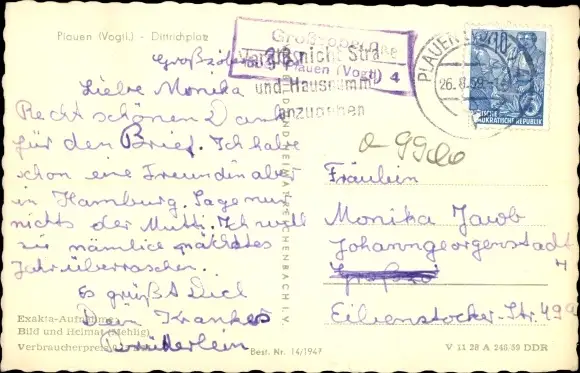 Plauen (Vogtl.) - Dittrichplatz
Vergiß nicht Straße
und Hausnummer
anzugeben
Plauen (Vogtl) 4
PLAUEN
26.8.59
DEUTSCHE DEMOKRATISCHE REPUBLIK
5
Liebe Monika
Recht schönen Dank
für den Brief. Ich habe
schon eine Freundin aber
in Hamburg. Sage nur
nichts der Mutti. Ich will
sie nämlich nächstes
Jahr überraschen.
Es grüßt Dich
Dein Krankes
Brüderlein
Fräulein
Monika Jacob
Johanngeorgenstadt
Eibenstocker-Str. 49a
Exakta-Aufnahme:
Bild und Heimat (Mehlig)
Verbraucherpreis
BILD UND HEIMAT REICHENBACH I. V.
Best. Nr. 14/1947
V 11 28 A 248/59 DDR